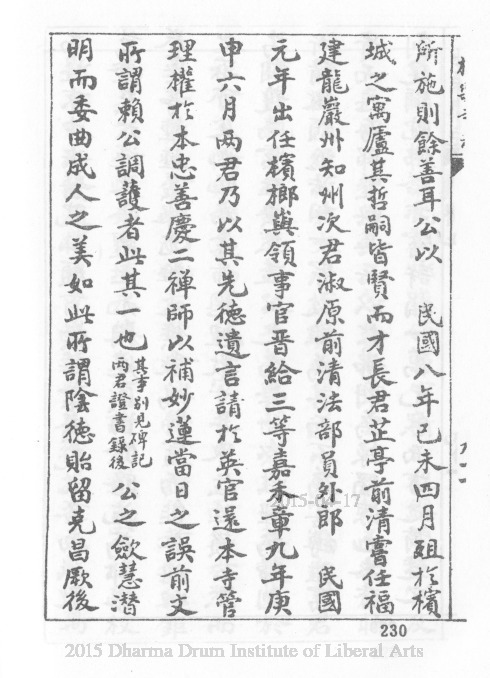 所施則餘善耳公以 民國八年己未四月殂於檳
城之寓廬其哲嗣皆賢而才長君芷亭前清嘗任福
建龍巖州知州次君淑原前清法部員外郎 民國
元年出任檳榔嶼領事官晋給三等嘉禾章九年庚
申六月两君乃以其先德遺言請於英官還本寺管
理權於本忠善慶二禅師以補妙蓮當日之誤前文
所謂賴公調護者此其一也其事別見碑記两君證書錄後公之歛慧潜
明而委曲成人之美如此所謂陰德貽留克昌厥後
230
2015 Dharma Drum Institute of Liberal Arts